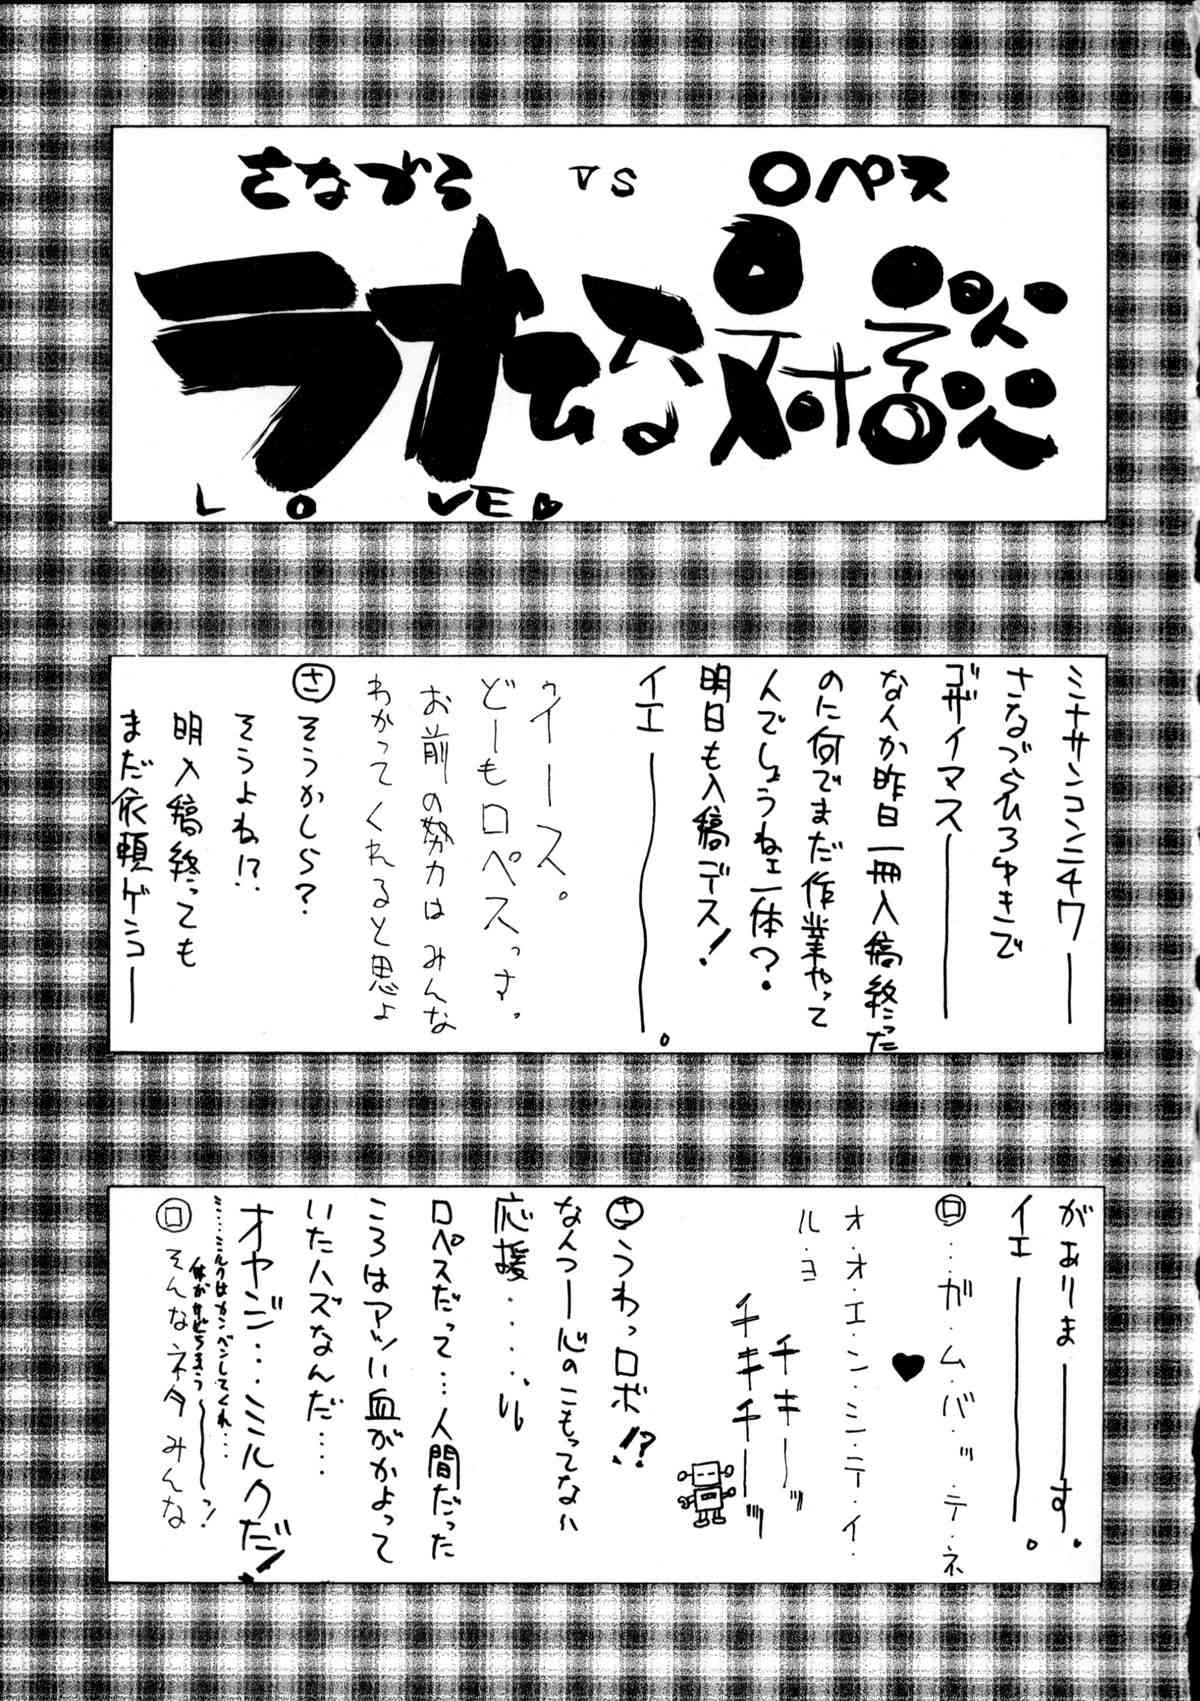 さなづら VS ロペス
ラオウな対談
LOVE♥
ミナサンコンニチワー
さなづらひろゆきで
ゴザイマスー
なんか昨日一冊入稿終った
のに何でまだ作業やって
んでしょうねェ一体?
明日も入稿デス!
イエー。
ウイース。
どーもロペスっす。
お前の努力はみんな
わかってくれると思よ
㋚そうかしら?
そうよね!?
明入稿終っても
まだ依頼ゲンコー
がありまーす。
イエー。
ロ…ガ・ム・バ・ッ・テ・ネ♥
オ・オ・エ・ン・シ・テ・イ・
ル・ヨ
チキーッ
チキチーッ
㋚うわっロボ!?
なんつー心のこもってない
応援‥‥‥
ロペスだって…人間だった
ころはアツい血がかよって
いたハズなんだ‥‥
オヤジ…ミルクだ!
ミ……ミルクはカンベンしてくれ…
体がサビちまうーっ!
ロ そんなネタみんな